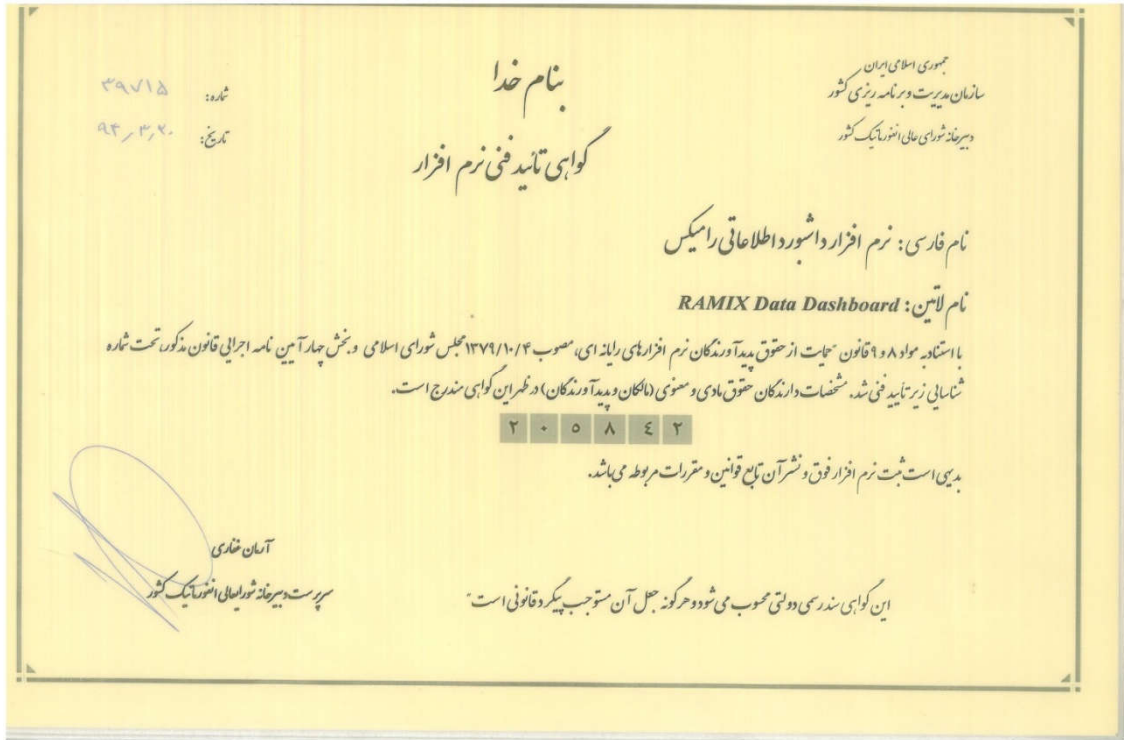 جمهوری اسلامی ایران
سازمان مدیریت و برنامه ریزی کشور
دبیرخانه شورای عالی انفورماتیک کشور
بنام خدا
گواهی تائید فنی نرم افزار
شماره: ۳۹۷۱۵
تاریخ: ۹۴,۳,۲۰
نام فارسی: نرم افزار داشبورد اطلاعاتی رامیکس
نام لاتین: RAMIX Data Dashboard
با استناد به مواد ۸ و ۹ قانون حمایت از حقوق پدیدآورندگان نرم افزارهای رایانه ای، مصوب ۱۳۷۹/۱۰/۴ مجلس شورای اسلامی و بخش چهار آیین نامه اجرایی قانون مذکور، تحت شماره
شناسایی زیر تأیید فنی شد. مشخصات دارندگان حقوق مادی و معنوی (مالکان و پدیدآورندگان) در ظهر این گواهی مندرج است.
۲ ۰ ۵ ۸ ٤ ۲
بدیهی است ثبت نرم افزار فوق و نشر آن تابع قوانین و مقررات مربوطه می باشد.
آرمان غفاری
سرپرست دبیرخانه شورایعالی انفورماتیک کشور
این گواهی سند رسمی دولتی محسوب می شود و هرگونه جعل آن مستوجب پیگرد قانونی است